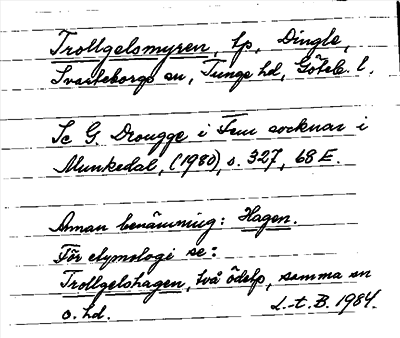 Trollgelsmyren, tp, Dingle,
Svarteborgs sn, Tunge hd, Göteb. l.
Se G. Drougge i Fem socknar i
Munkedal, (1980), s. 327, 68 E.
Annan benämning: Hagen.
För etymologi se:
Trollgelshagen, två ödetp, samma sn
o. hd. L-t. B. 1984.